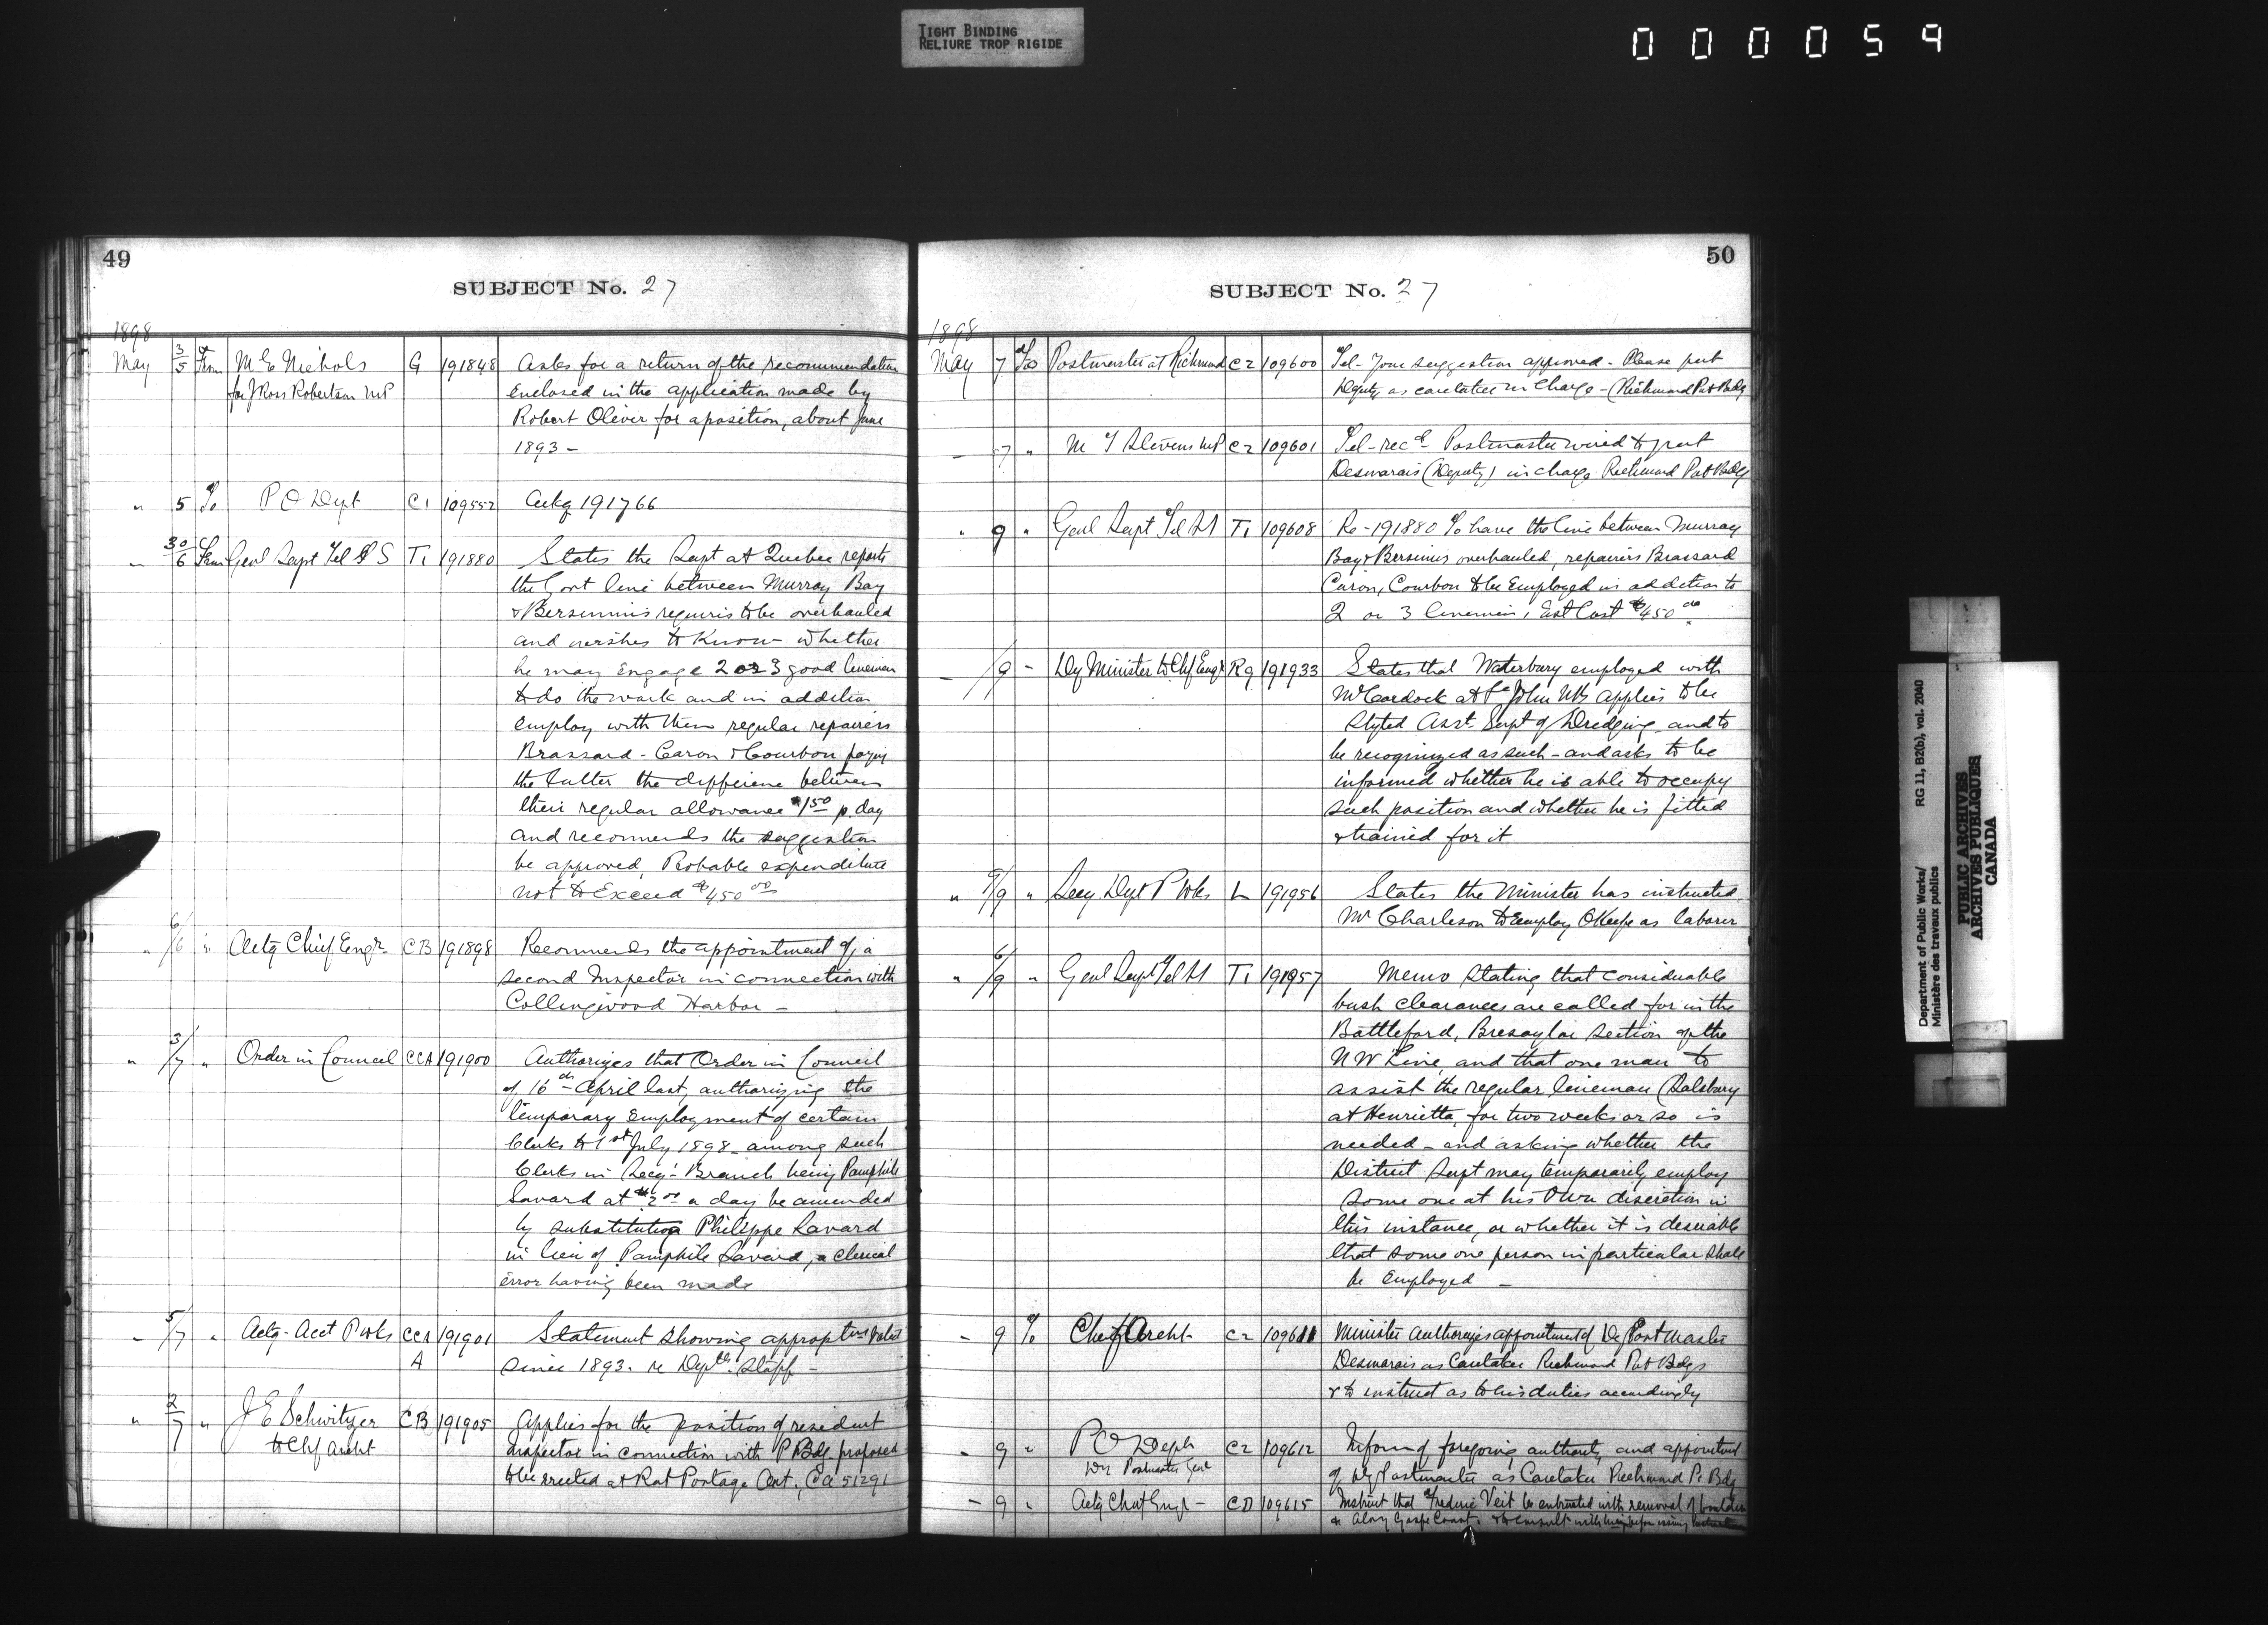 TIGHT BINDING
RELIURE TROP RIGIDE
000059
49
SUBJECT No. 27
1898
May 3/5 From M E Nichols G 191848 Asks for a return of the recommendation
for J Ross Robertson MP enclosed in the application made by
Robert Oliver for a position, about June
1893 -
" 5 To P O Dept C1 109552 Ackg 191766
" 30/6 From Genl Supt Tel S T1 191880 States the Supt at Quebec reports
the Govt line between Murray Bay
& Bersimis requires to be overhauled
and wishes to know whether
he may engage 2 or 3 good linemen
to do the work and in addition
employ with them regular repairers
Brassard - Caron & Courbon paying
the latter the difference between
their regular allowance & $1.50 p. day
and recommends the suggestion
be approved, Probable expenditure
not to exceed $450 00
" 6/6 " Actg Chief Engr CB 191898 Recommends the appointment of a
second Inspector in connection with
Collingwood Harbor -
" 3/7 " Order in Council CCA 191900 Authorizes that Order in Council
of 16th April last, authorizing the
temporary employment of certain
Clerks to 1st July 1898 - among such
Clerks in Secy's Branch being Pamphile
Savard at $2 00 a day be amended
by substituting Philippe Savard
in lieu of Pamphile Savard, a clerical
error having been made
" 5/7 " Actg - Acct P Wks CCA 191901 Statement showing approp
A since 1893. re Deptl. Staff -
" 2/7 " J E Schwitzer CB 191905 Applies for the position of resident
to Chf Archt Inspector in connection with P Bdg proposed
to be erected at Rat Portage Ont., Ca 51291
50
SUBJECT No. 27
1898
May 7 To Postmaster at Richmond C2 109600 Tel - Your suggestion approved - Please put
Deputy as caretaker in charge - (Richmond Pub Bdg
- 7 " M T Stevens MP C2 109601 Tel - recd Postmaster wired to put
Desmarais (Deputy) in charge Richmond Pub Bdg
" 9 " Genl Supt Tel T1 109608 Re - 191880 To have the line between Murray
Bay & Bersimis overhauled, repairers Brassard
Caron, Courbon to be Employed in addition to
2 or 3 linemen, Est Cost $450 00
- /9 - Dy Minister to Chf Engr R9 191933 States that Waterbury employed with
McCordock at St John NB applies to be
styled Asst. Supt of Dredging and to
be recognized as such - and asks to be
informed whether he is able to occupy
such position and whether he is fitted
& trained for it
" 9/9 " Secy. Dept P Wks L 191956 States the Minister has instructed
Mr Charleson to employ OKeefe as laborer
" 6/9 " Genl Supt Tel T1 191957 Memo stating that considerable
bush clearances are called for in the
Battleford, Bresaylor section of the
NW Line, and that one man to
assist the regular lineman (Salsbury
at Henrietta, for two weeks or so is
needed - and asking whether the
District Supt may temporarily employ
some one at his own discretion in
this instance, or whether it is desirable
that some one person in particular shall
be employed -
- 9 To Chief Archt - C2 109611 Minister authorizes appointment of Dy Post Master
Desmarais as Caretaker Richmond Pub Bdgs
& to instruct as to his duties accordingly
- 9 " P O Deptn C2 109612 Inform of foregoing authority and appointment
Dy Postmaster Genl of Dy Postmaster as Caretaker Richmond P. Bdg
- 9 " Actg Chief Engr - CD 109615 Instruct that Frederic Veit be entrusted with removal of boulders
Along Gaspe Coast. & to consult with him before issuing
Department of Public Works/
Ministère des travaux publics
RG 11, B2(b), vol. 2040
PUBLIC ARCHIVES
ARCHIVES PUBLIQUES
CANADA